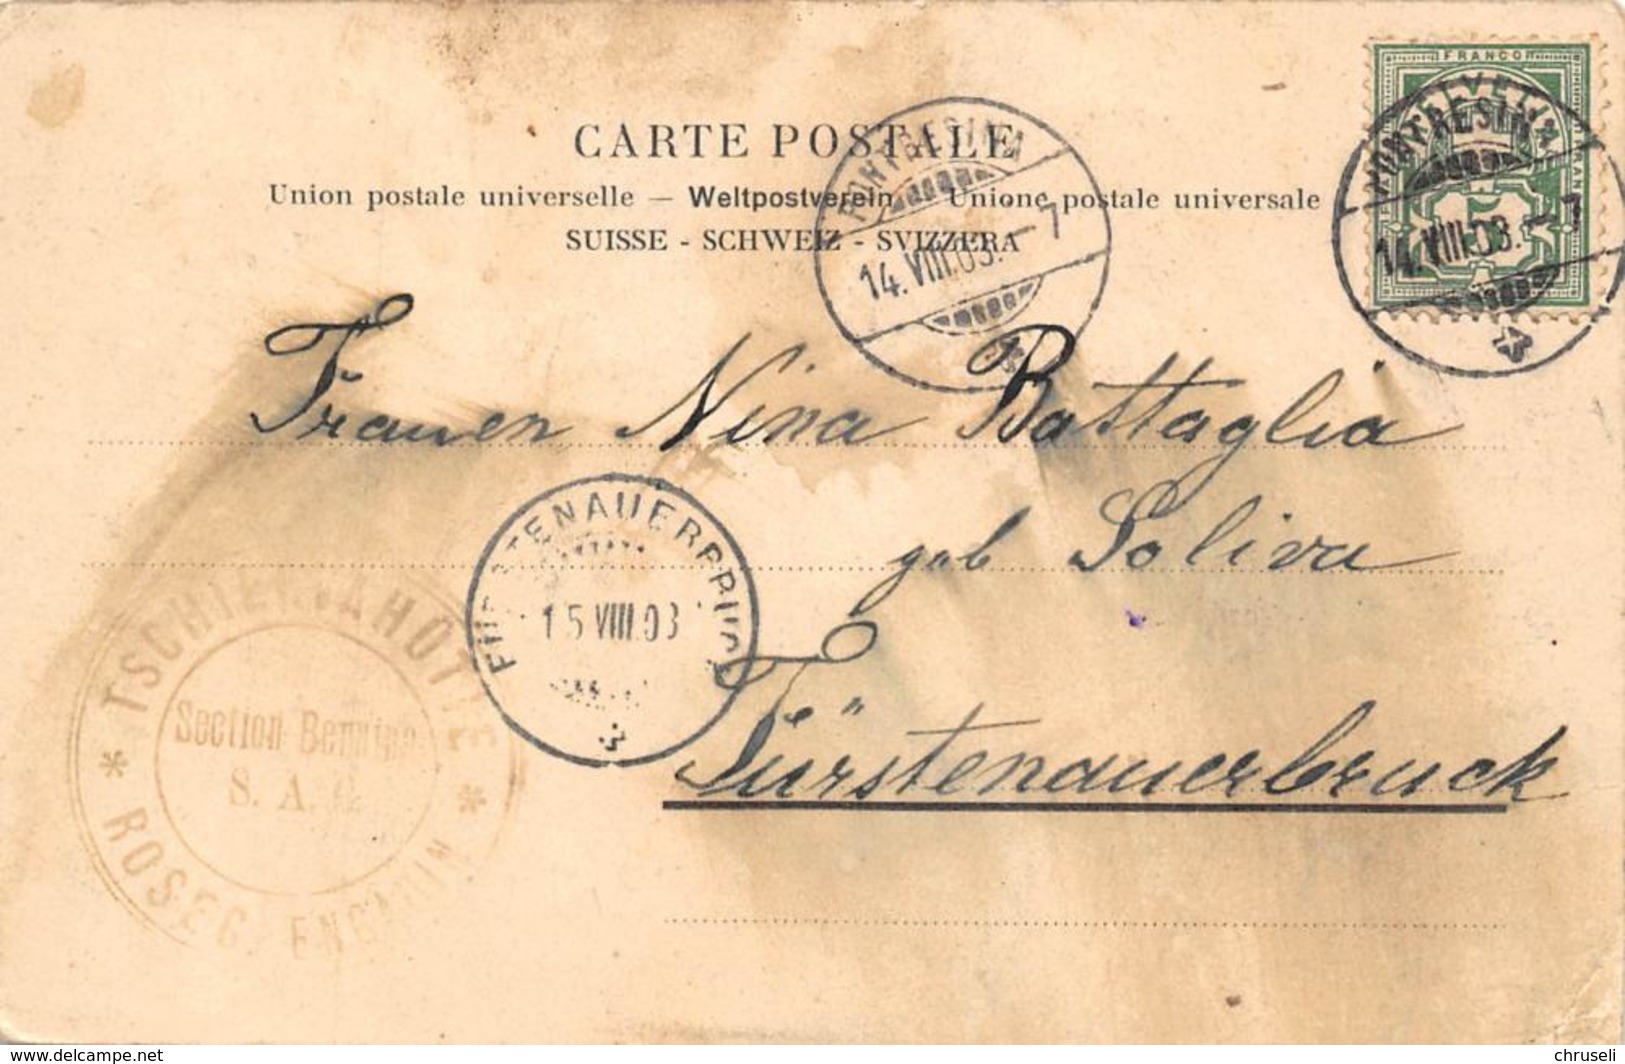 FRANCO
HELVETIA
FRANCO
CARTE POSTALE
Union postale universelle — Weltpostverein — Unione postale universale
SUISSE - SCHWEIZ - SVIZZERA
PONTRESINA
14.VIII.03.–7
PONTRESINA
14.VIII.03.–7
Frauen Nina Battaglia
geb Soliva
Fürstenauerbruck
FÜRSTENAUERBRUCK
15 VIII.03
TSCHIERVAHÜTTE
Section Bernina
S. A. C.
ROSEG, ENGADIN
www.delcampe.net
chruseli